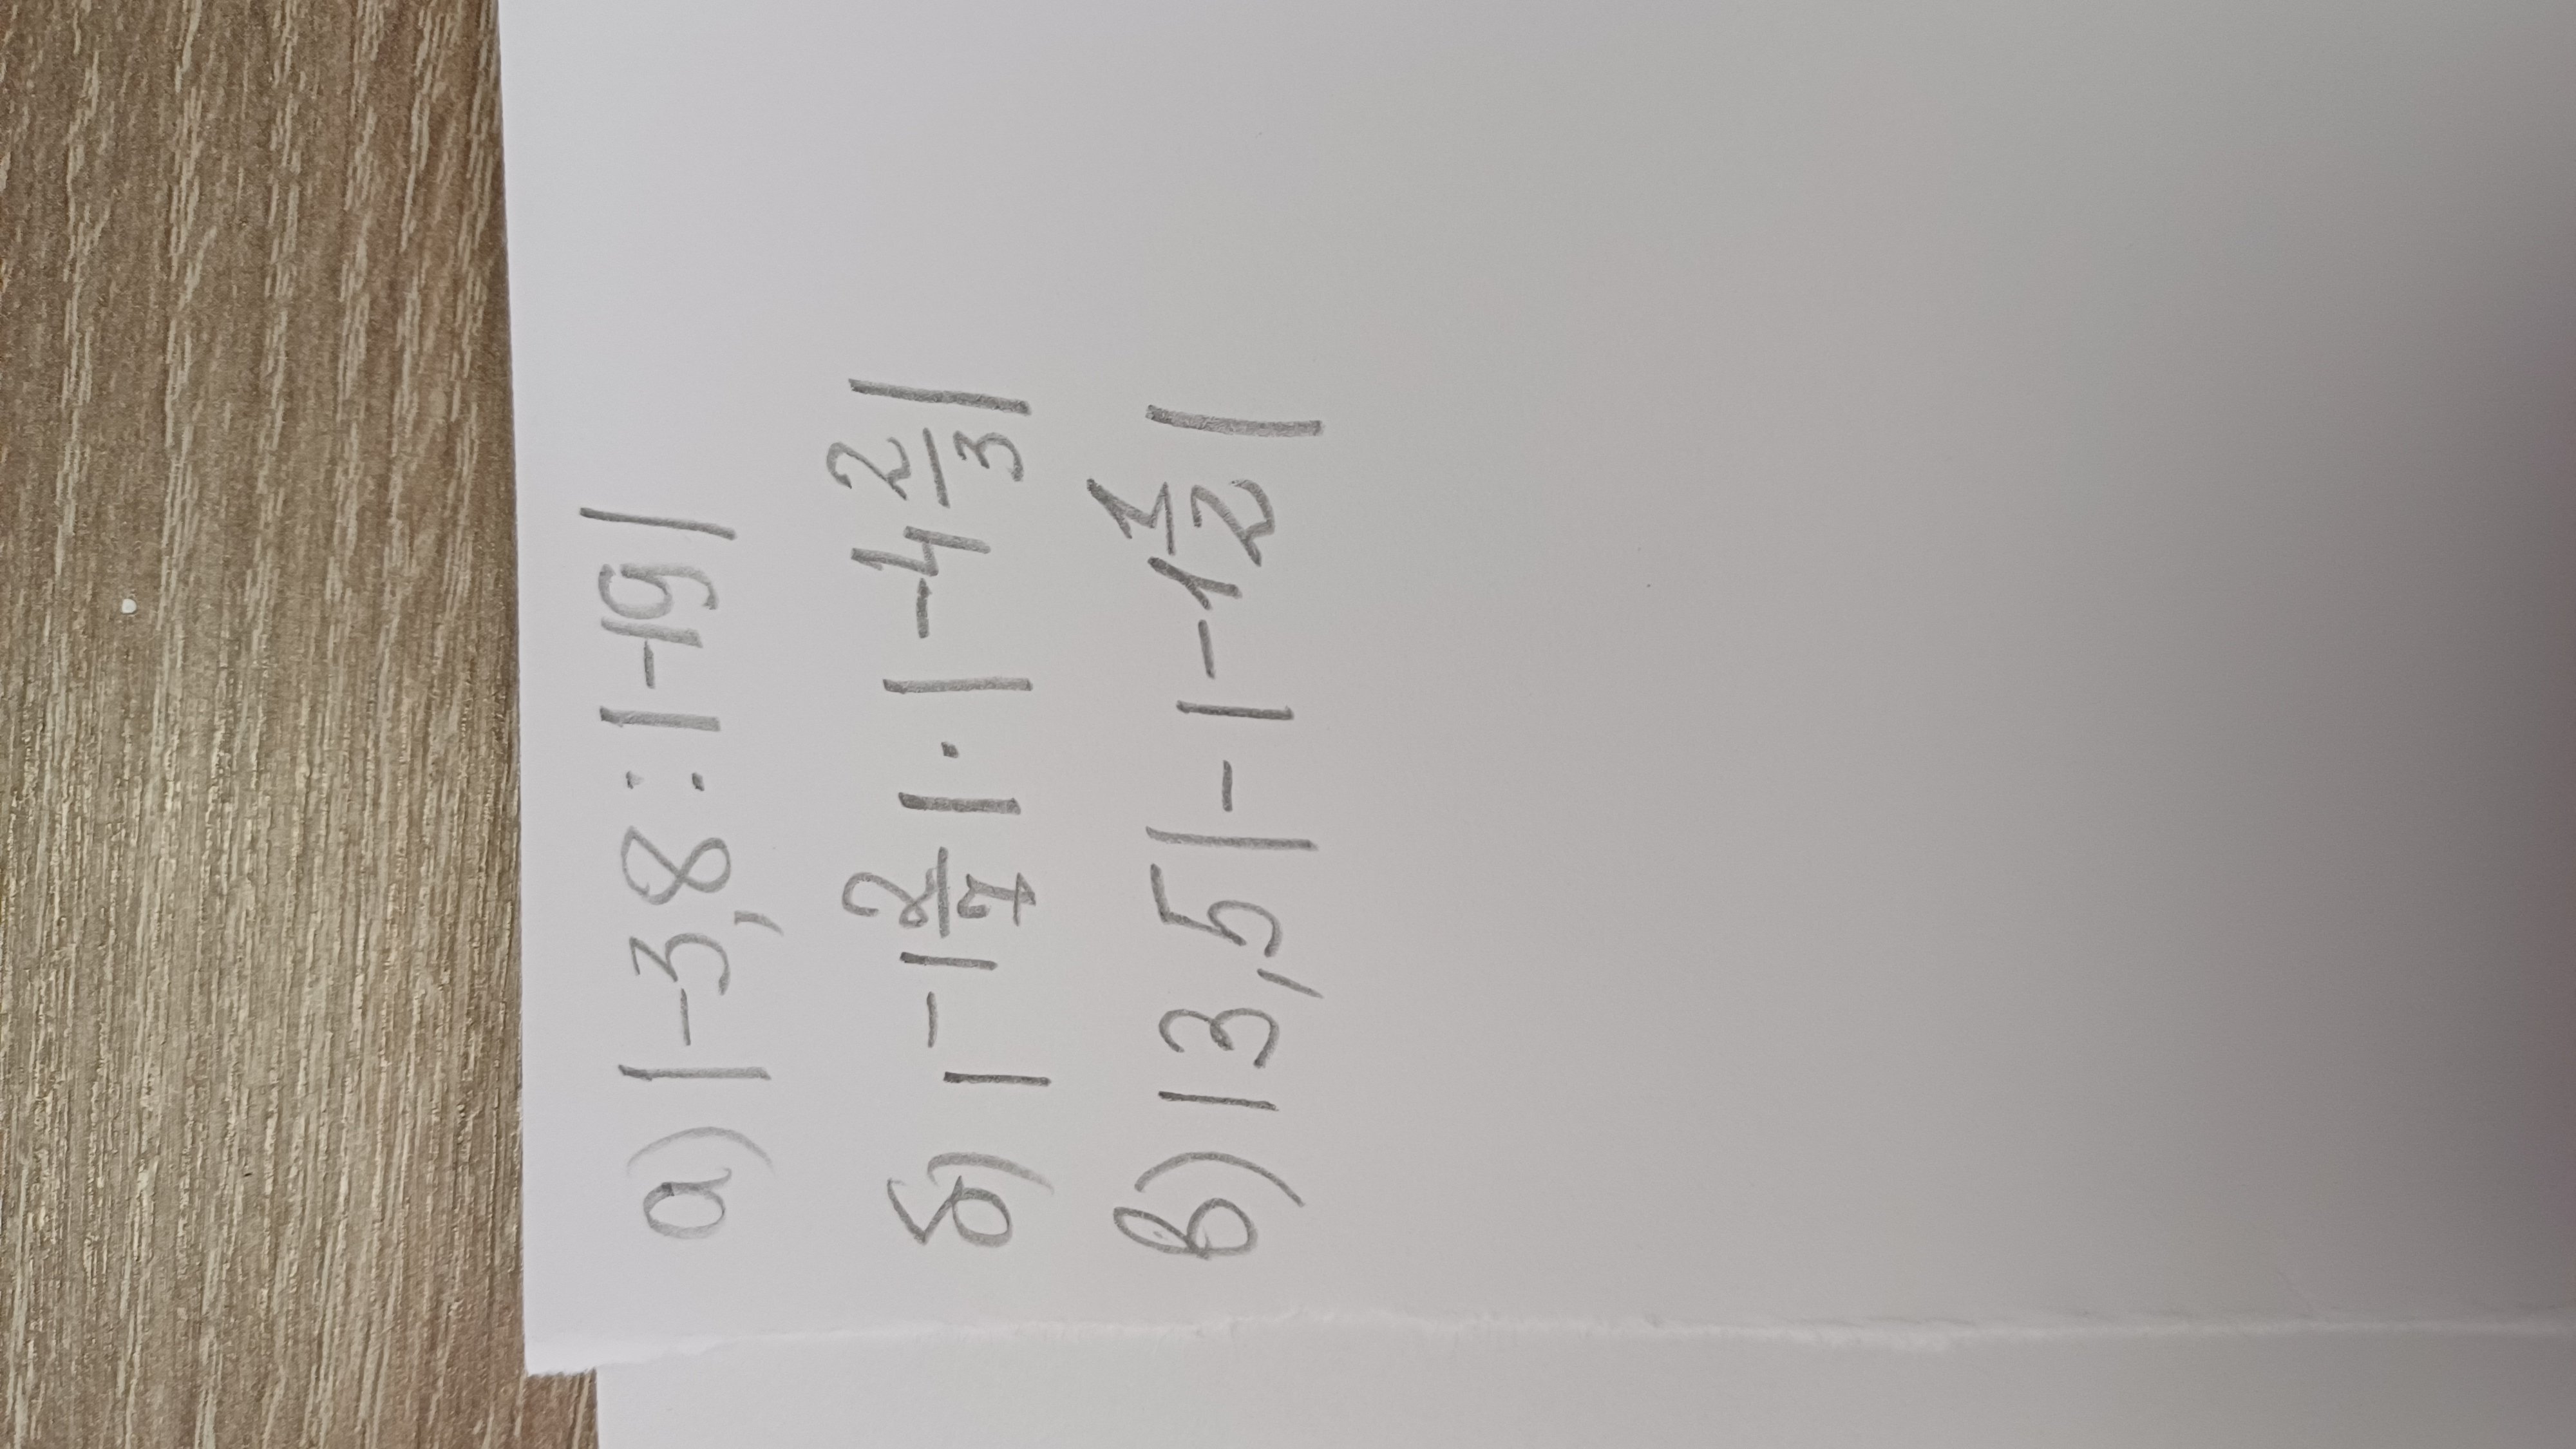 а) |-3,8 : |-19|
б) |-1 2/7| · |-4 2/3|
в) |3,5| - |-1 1/2|